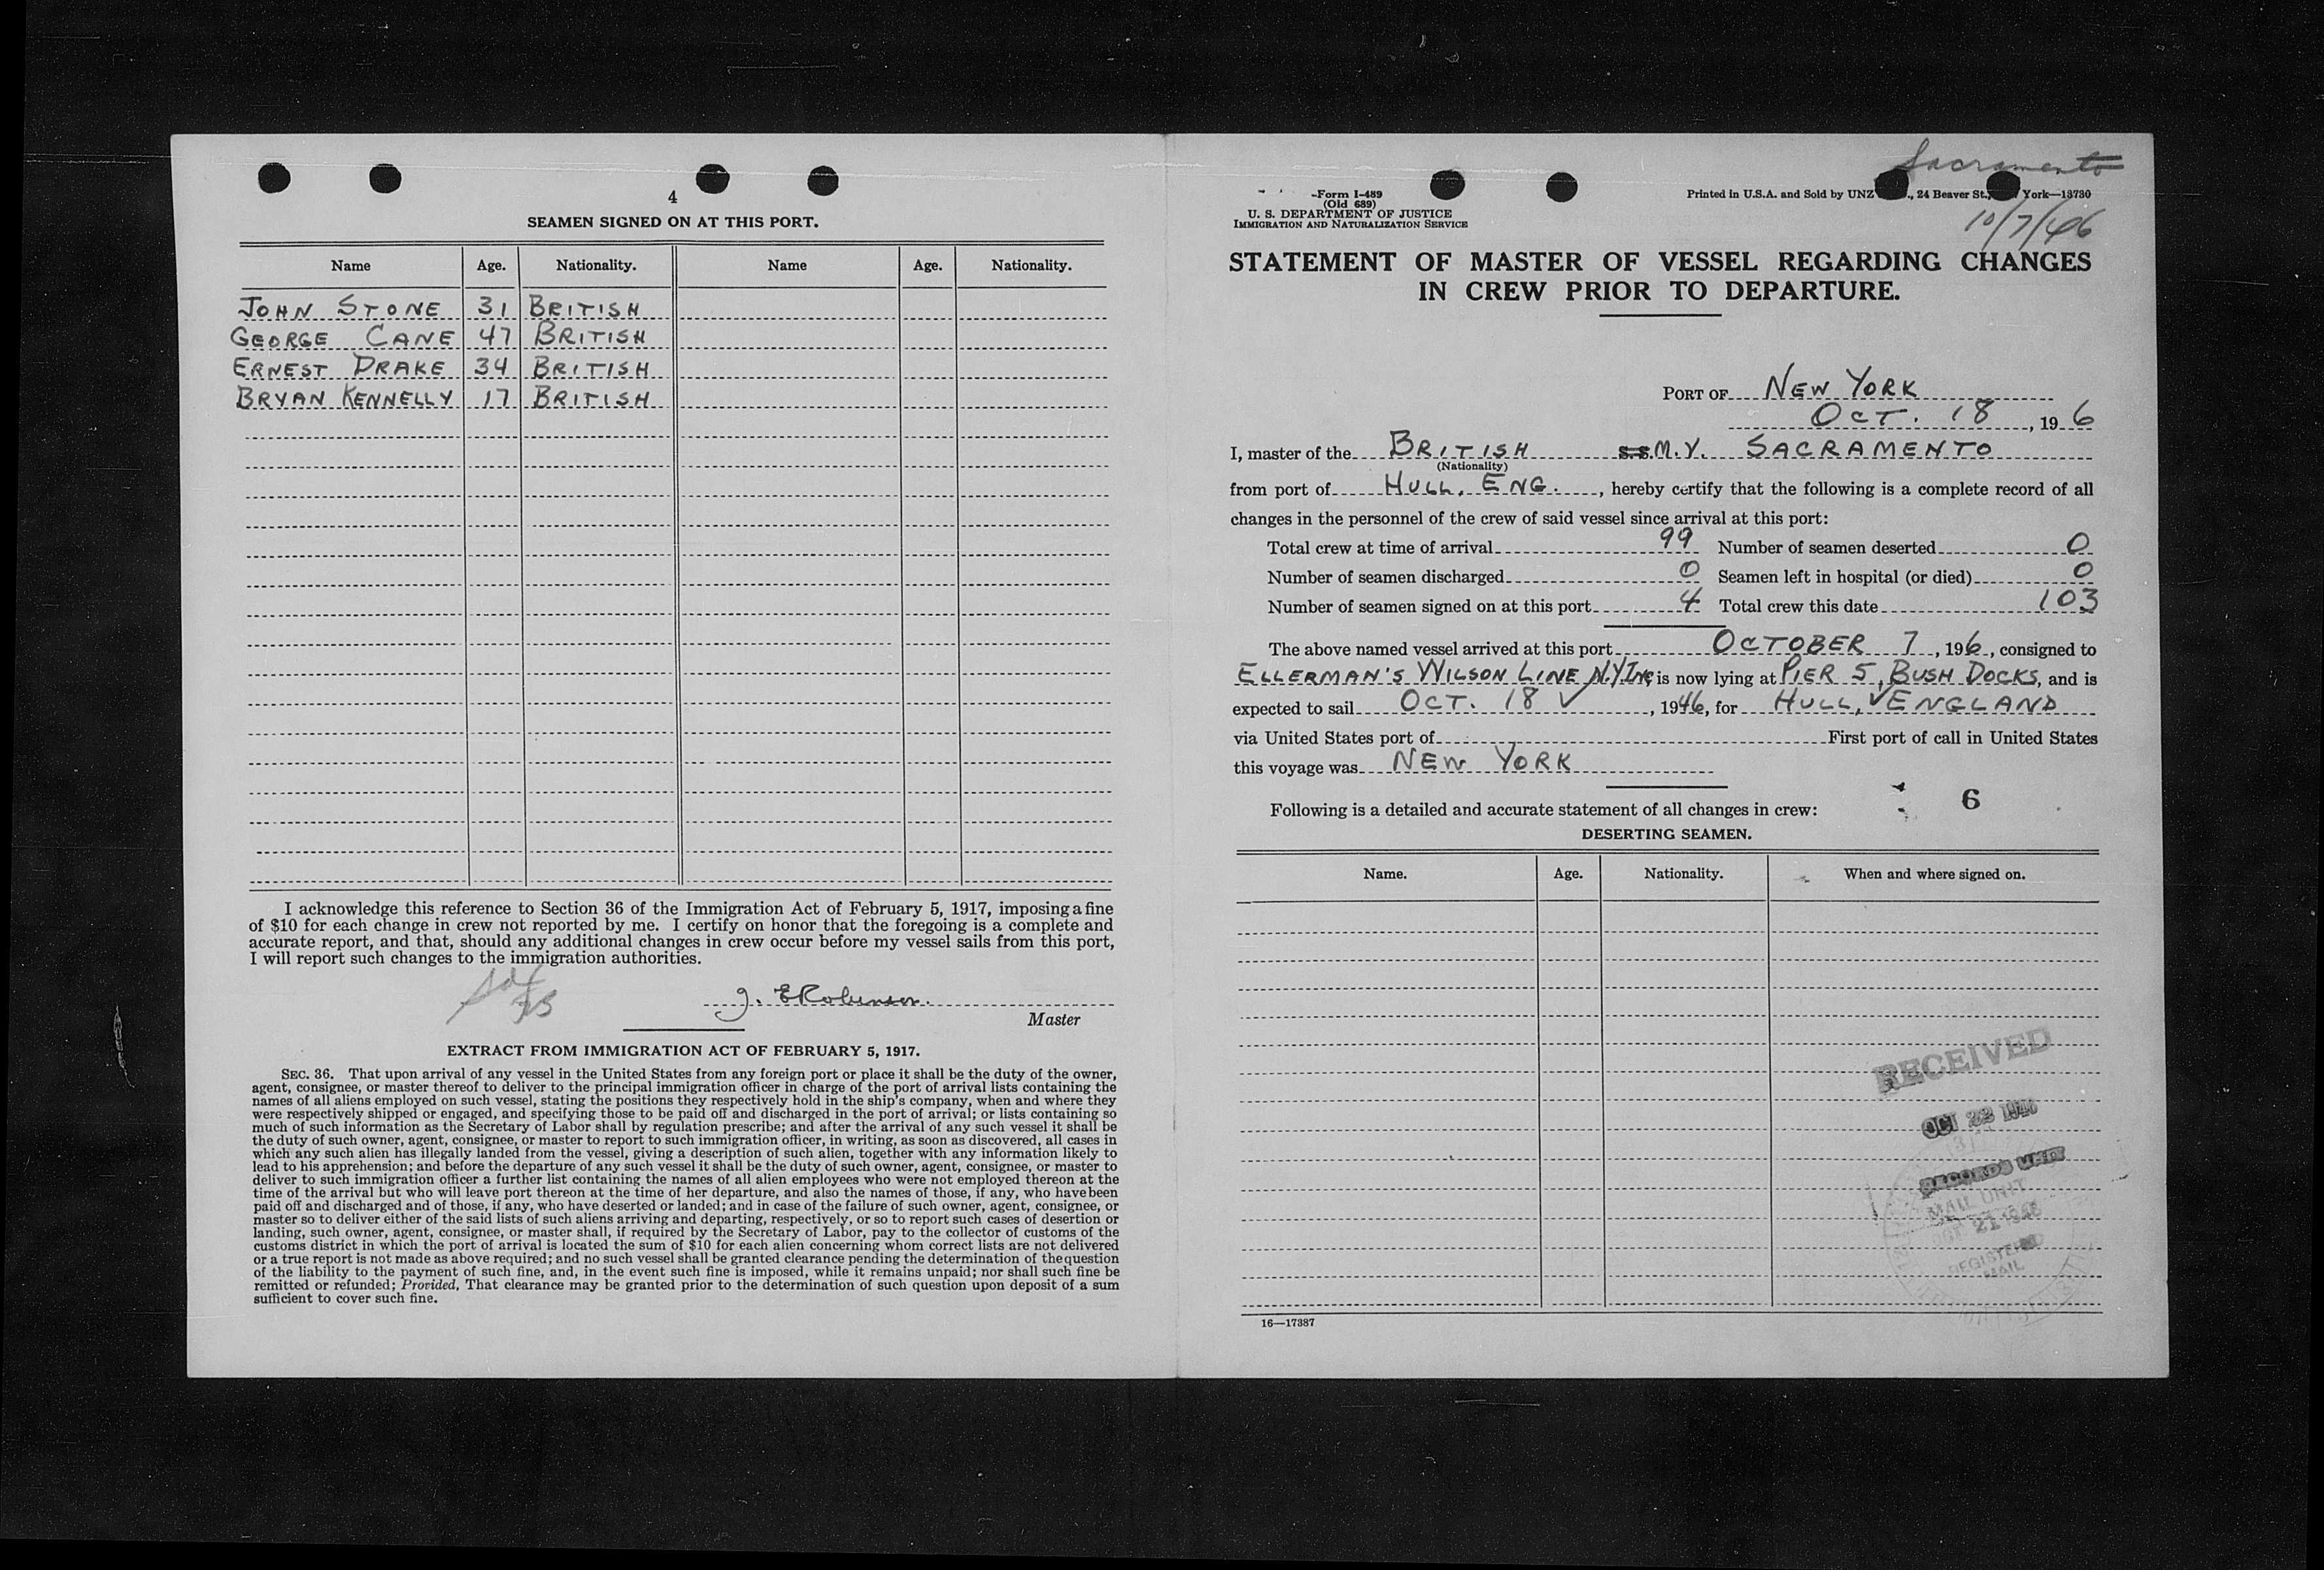 4
SEAMEN SIGNED ON AT THIS PORT.
Name Age. Nationality. Name Age. Nationality.
JOHN STONE 31 BRITISH
GEORGE CANE 47 BRITISH
ERNEST DRAKE 34 BRITISH
BRYAN KENNELLY 17 BRITISH
I acknowledge this reference to Section 36 of the Immigration Act of February 5, 1917, imposing a fine
of $10 for each change in crew not reported by me. I certify on honor that the foregoing is a complete and
accurate report, and that, should any additional changes in crew occur before my vessel sails from this port,
I will report such changes to the immigration authorities.
J. E Robinson.
Master
EXTRACT FROM IMMIGRATION ACT OF FEBRUARY 5, 1917.
SEC. 36. That upon arrival of any vessel in the United States from any foreign port or place it shall be the duty of the owner,
agent, consignee, or master thereof to deliver to the principal immigration officer in charge of the port of arrival lists containing the
names of all aliens employed on such vessel, stating the positions they respectively hold in the ship's company, when and where they
were respectively shipped or engaged, and specifying those to be paid off and discharged in the port of arrival; or lists containing so
much of such information as the Secretary of Labor shall by regulation prescribe; and after the arrival of any such vessel it shall be
the duty of such owner, agent, consignee, or master to report to such immigration officer, in writing, as soon as discovered, all cases in
which any such alien has illegally landed from the vessel, giving a description of such alien, together with any information likely to
lead to his apprehension; and before the departure of any such vessel it shall be the duty of such owner, agent, consignee, or master to
deliver to such immigration officer a further list containing the names of all alien employees who were not employed thereon at the
time of the arrival but who will leave port thereon at the time of her departure, and also the names of those, if any, who have been
paid off and discharged and of those, if any, who have deserted or landed; and in case of the failure of such owner, agent, consignee, or
master so to deliver either of the said lists of such aliens arriving and departing, respectively, or so to report such cases of desertion or
landing, such owner, agent, consignee, or master shall, if required by the Secretary of Labor, pay to the collector of customs of the
customs district in which the port of arrival is located the sum of $10 for each alien concerning whom correct lists are not delivered
or a true report is not made as above required; and no such vessel shall be granted clearance pending the determination of the question
of the liability to the payment of such fine, and, in the event such fine is imposed, while it remains unpaid; nor shall such fine be
remitted or refunded; Provided, That clearance may be granted prior to the determination of such question upon deposit of a sum
sufficient to cover such fine.
Sacramento
Form I-489
(Old 689)
U. S. DEPARTMENT OF JUSTICE
IMMIGRATION AND NATURALIZATION SERVICE
Printed in U.S.A. and Sold by UNZ , 24 Beaver St., York—13730
10/7/46
STATEMENT OF MASTER OF VESSEL REGARDING CHANGES
IN CREW PRIOR TO DEPARTURE.
PORT OF NEW YORK
OCT. 18, 19 6
I, master of the BRITISH S.S. M.V. SACRAMENTO
(Nationality)
from port of HULL, ENG., hereby certify that the following is a complete record of all
changes in the personnel of the crew of said vessel since arrival at this port:
Total crew at time of arrival 99 Number of seamen deserted 0
Number of seamen discharged 0 Seamen left in hospital (or died) 0
Number of seamen signed on at this port 4 Total crew this date 103
The above named vessel arrived at this port OCTOBER 7, 196, consigned to
ELLERMAN'S WILSON LINE N.Y Inc is now lying at PIER 5, BUSH DOCKS, and is
expected to sail OCT. 18 ✓, 1946, for HULL, ✓ ENGLAND
via United States port of First port of call in United States
this voyage was NEW YORK
6
Following is a detailed and accurate statement of all changes in crew:
DESERTING SEAMEN.
Name. Age. Nationality. When and where signed on.
RECEIVED
OCT 1946
RECORDS UNIT
MAIL UNIT
21 1946
REGISTERED
MAIL
16—17387